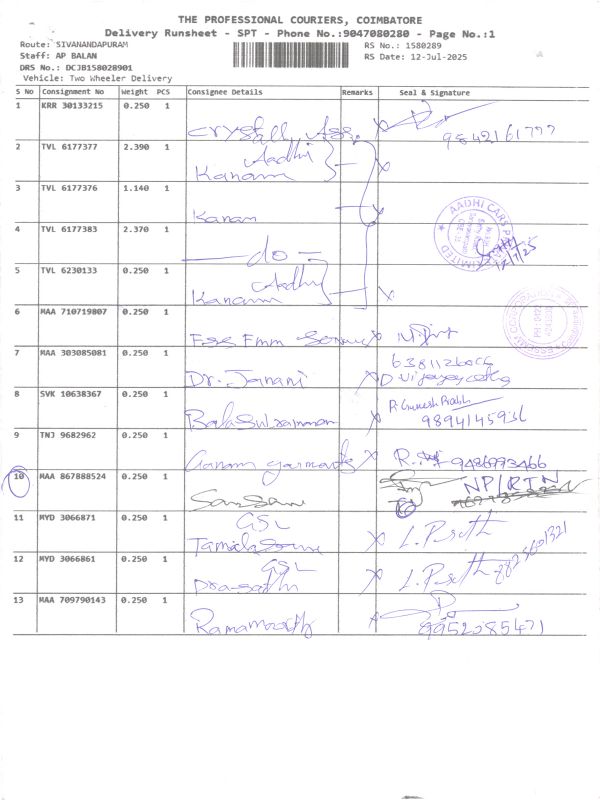 THE PROFESSIONAL COURIERS, COIMBATORE
Delivery Runsheet - SPT - Phone No.:9047080280 - Page No.:1
Route: SIVANANDAPURAM
RS No.: 1580289
Staff: AP BALAN
RS Date: 12-Jul-2025
DRS No.: DCJB158028901
Vehicle: Two Wheeler Delivery
S No Consignment No Weight PCS Consignee Details Remarks Seal & Signature
1 KRR 30133215 0.250 1
Crystal Ass. 9842161777
2 TVL 6177377 2.390 1
Aadhi
Kanam
3 TVL 6177376 1.140 1
Kanam
4 TVL 6177383 2.370 1
do
AADHI CARS LIMITED
12/7/25
5 TVL 6230133 0.250 1
Aadhi
Kanam
6 MAA 710719807 0.250 1
7 MAA 303085081 0.250 1
Dr. Janani
8 SVK 10638367 0.250 1
P. Ganesh Prabhu
Balasubramanian 9894145936
9 TNJ 9682962 0.250 1
Garments 9486993466
10 MAA 867888524 0.250 1
NP/RTN
11 MYD 3066871 0.250 1
GSL
L. Prasath
12 MYD 3066861 0.250 1
GSL
Prasath L. Prasath 8825601321
13 MAA 709790143 0.250 1
Ramamoorthy 9952085471